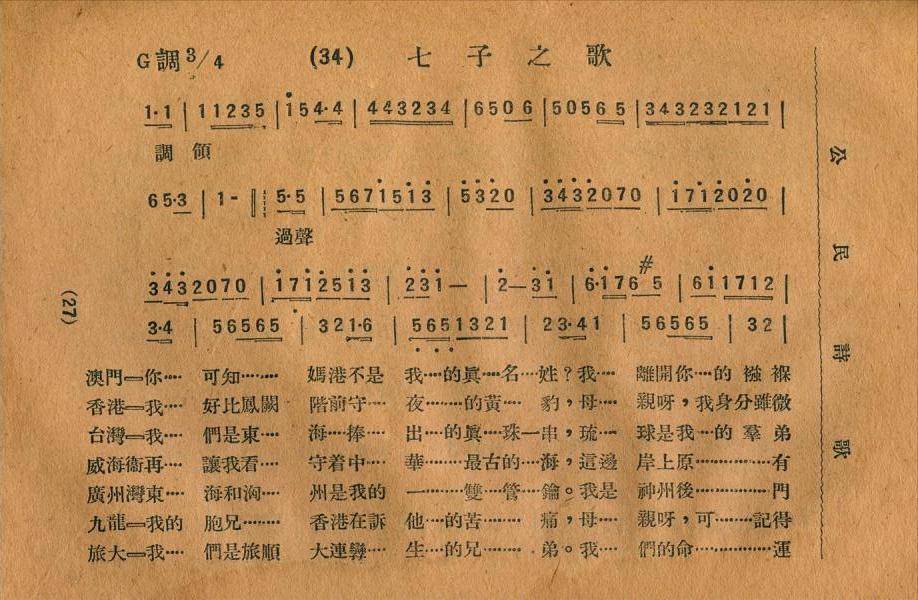 G調3/4 (34) 七子之歌
1·1 | 1 1235 | 154·4 | 443234 | 6506 | 50565 | 343232121 |
領調
65·3 | 1- | 5·5 | 5671513 | 5320 | 3432070 | 1712020 |
過聲
3432070 | 1712513 | 231— | 2—31 | 6·176#5 | 611712 |
3·4 | 56565 | 321·6 | 5651321 | 23·41 | 56565 | 32 |
澳門═你‥‥ 可知‥‥‥ 媽港不是 我‥‥的眞‥‥名‥姓?我‥‥ 離開你‥‥的 襁褓
香港═我‥‥ 好比鳳闕 階前守‥‥ 夜‥‥‥的黃‥‥ 豹,母‥‥ 親呀,我身分雖微
台灣═我‥‥ 們是東‥‥ 海‥捧‥‥ 出‥‥的眞‥珠一串,琉‥ 球是我‥‥的 羣弟
威海衞再‥‥ 讓我看‥‥ 守着中‥‥ 華‥‥‥最古的‥‥海,這邊 岸上原‥‥‥‥‥有
廣州灣東‥‥ 海和洶‥‥ 州是我的 一‥‥‥雙‥管‥鑰。我是 神州後‥‥‥‥‥門
九龍═我的 胞兄‥‥‥ 香港在訴 他‥‥的苦‥‥‥ 痛,母‥‥ 親呀,可‥‥‥記得
旅大═我‥‥ 們是旅順 大連孿‥‥ 生‥‥的兄‥‥‥ 弟。我‥‥ 們的命‥‥‥‥‥運
公民詩歌
(27)